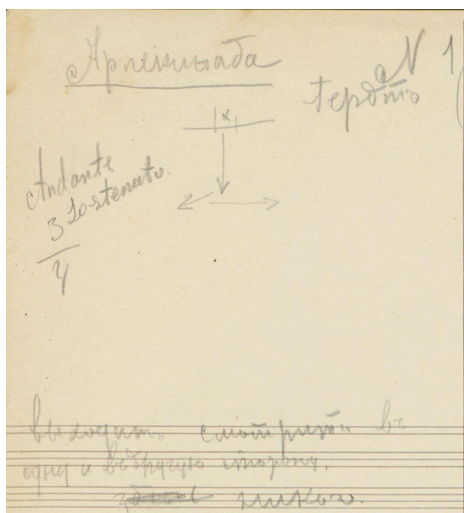 Арлекинада
N 1
Andante
Sostenuto.
3
4
выходитъ смотритъ въ
одну и въ другую сторону,
никого.